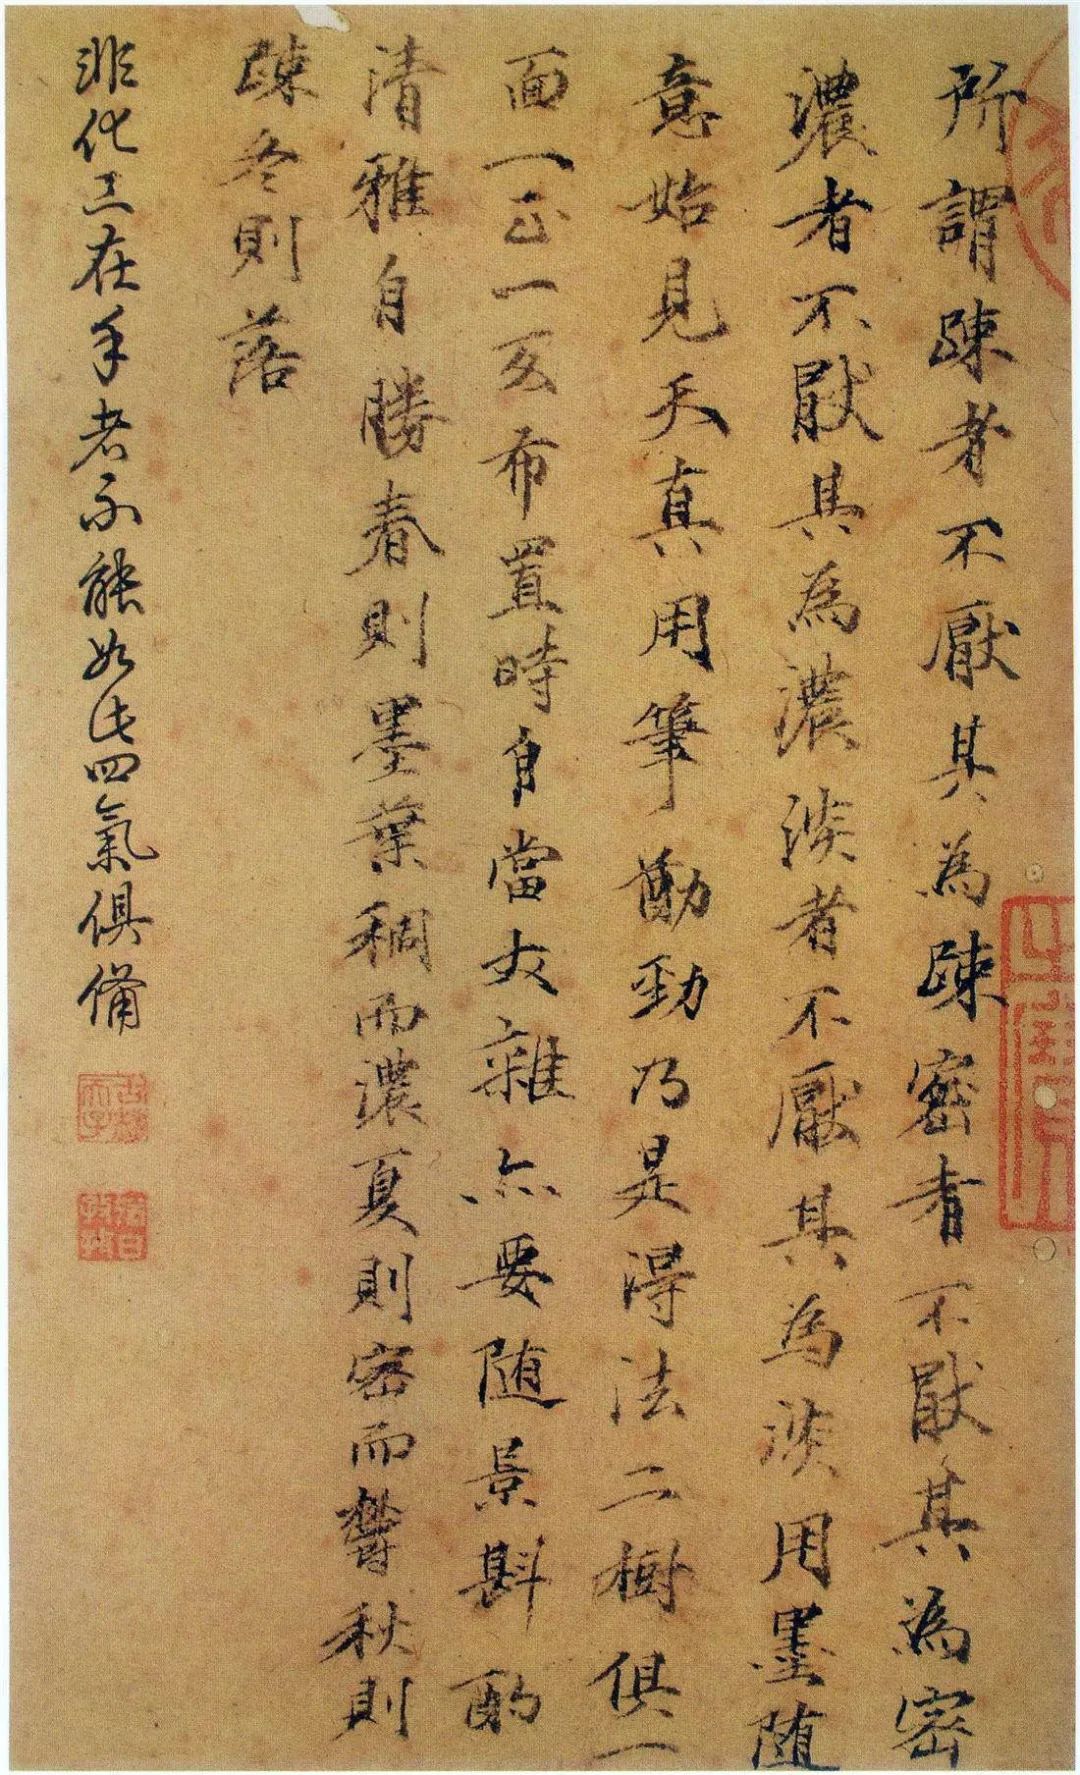 所謂踈者不厭其為踈密者不厭其為密
濃者不厭其為濃淡者不厭其為淡用墨随
意始見天真用筆勁乃是得法二樹俱一
面一正一反布置時自當雜亦要随景斟酌
清雅自勝春則墨葉稠而濃夏則密而鬱秋則
踈冬則落
非化工在手者不能如此四氣俱備